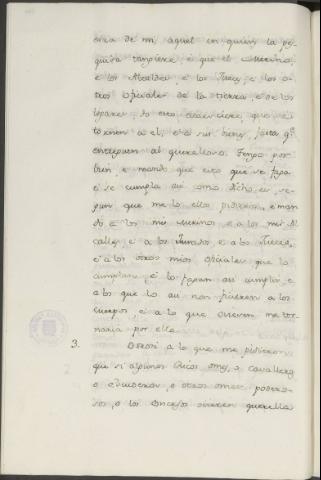 cera de mi aquel en quien la pes
quisa tanxiere, e que el Merino,
e los Alcaldes, e los Jueces, e los o
tros oficiales de la tierra, e de los
logares, do esto acaesciere, que se
tornen a el, e a sus bienes, fasta q.e
entreguen al querelloso. Tengo por
bien, e mando que esto que se faga
e se cumpla asi como dicho es, se
gun que me lo ellos pidieron, e man
do a los mis Merinos e a los mis Al
calles, e a los Jurados, e a los Jueces,
e a los otros mios oficiales que lo
cumplan e lo fagan asi cumplir, e
a los que lo asi non ficieren a los
cuerpos, e a lo que ovieren me tor
naria por ello.
3. Otrosi a lo que me pidieron
que si algunos Ricos omes, o cavalleros
o escuderos, o otros omes podero
sos, o los Concejos ovieren querella